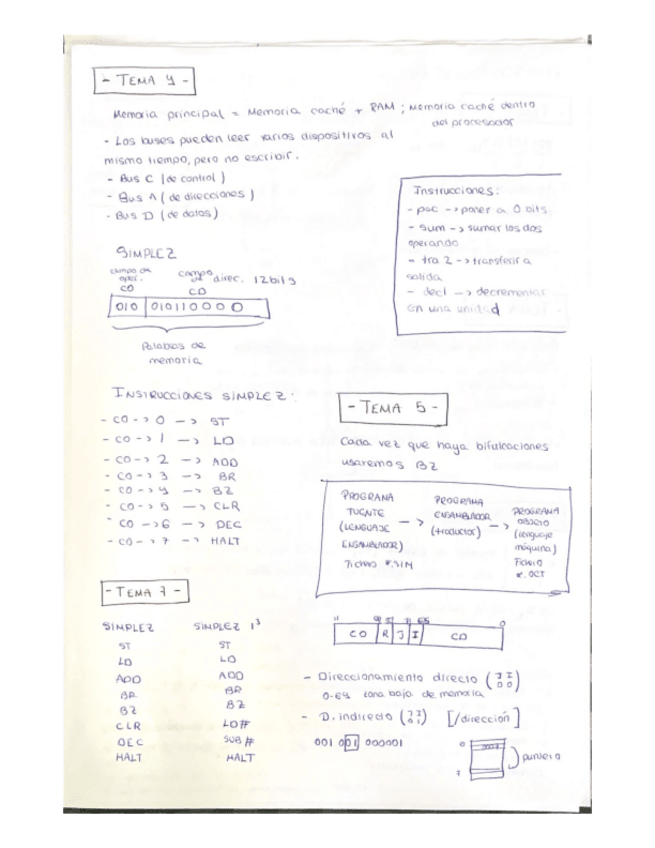 - TEMA 4 -
Memoria principal = Memoria caché + RAM ; Memoria caché dentro
del procesador
- Los buses pueden leer varios dispositivos al
mismo tiempo, pero no escribir.
- Bus C (de control)
- Bus A (de direcciones)
- Bus D (de datos)
Instrucciones:
- pac -> poner a 0 bits
- sum -> sumar los dos
operando
- tra 2 -> transferir a
salida
- decl -> decrementar
en una unidad
SIMPLEZ
campo de oper. campo de direc. 12 bits
CO CD
010 010110000
Palabras de
memoria
INSTRUCCIONES SIMPLEZ:
- CO -> 0 -> ST
- CO -> 1 -> LD
- CO -> 2 -> ADD
- CO -> 3 -> BR
- CO -> 4 -> BZ
- CO -> 5 -> CLR
- CO -> 6 -> DEC
- CO -> 7 -> HALT
- TEMA 5 -
Cada vez que haya bifulcaciones
usaremos BZ
PROGRAMA
FUENTE
(LENGUAJE
ENSAMBLADOR)
Fichero *.SIM
->
PROGRAMA
ENSAMBLADOR
(traductor)
->
PROGRAMA
OBJETO
(lenguaje
máquina)
Fichero
*.OCT
- TEMA 7 -
SIMPLEZ SIMPLEZ i³
ST ST
LD LD
ADD ADD
BR BR
BZ BZ
CLR LD#
DEC SUB#
HALT HALT
CO R J I CD
- Direccionamiento directo (J I
0 0)
0-64 zona baja de memoria
- D. indirecto (J I
0 1) [/dirección]
001 001 000001
0
7
puntero